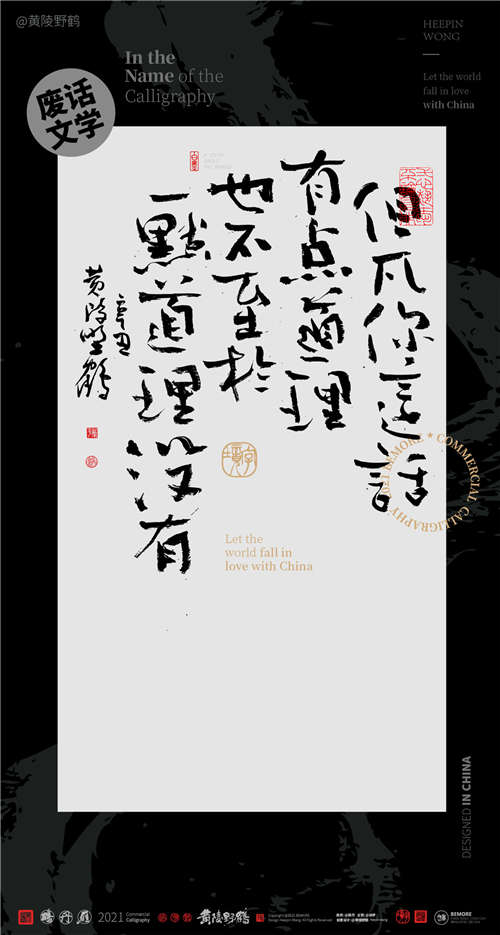 @黄陵野鹤
HEEPIN
WONG
In the
Name of the
Calligraphy
Let the world
fall in love
with China
废话
文学
但凡你這話
有点道理
也不至於
一點道理没有
辛丑
黄陵野鶴
2021 BEMORE ★ COMMERCIAL CALLIGRAPHY
Let the
world fall in
love with China
DESIGNED IN CHINA
2021
Commercial
Calligraphy
黄陵野鹤
BEMORE